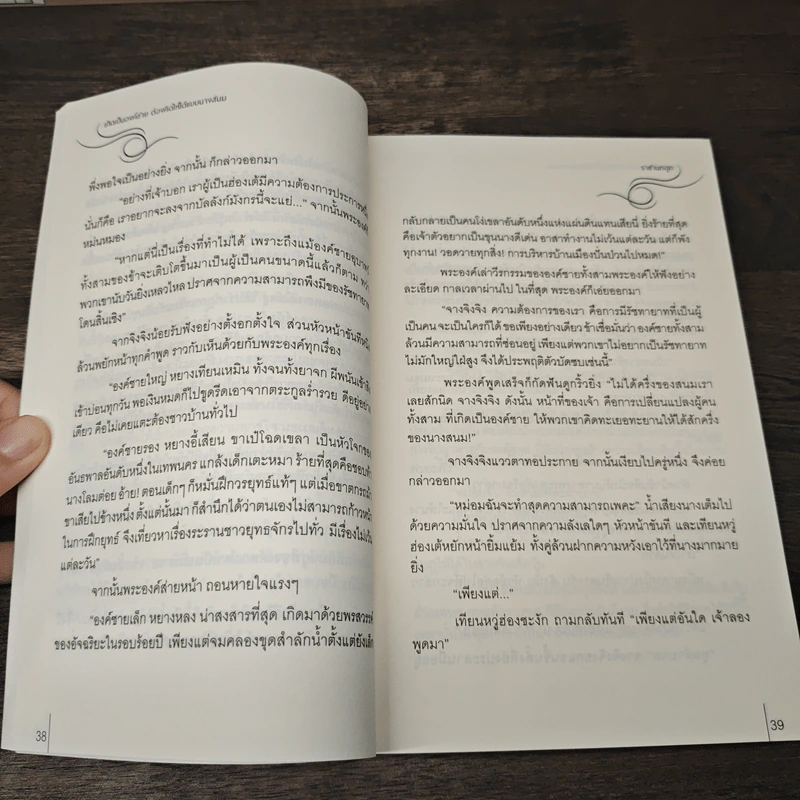 เกิดเป็นองค์ชาย ต้องคิดให้ได้แบบนางสนม
พึงพอใจเป็นอย่างยิ่ง จากนั้น ก็กล่าวออกมา
"อย่างที่เจ้าบอก เราผู้เป็นฮ่องเต้มีความต้องการประการหนึ่ง
นั่นก็คือ เราอยากจะลงจากบัลลังก์มังกรนี้จะแย่..." จากนั้นพระองค์
หม่นหมอง
"หากแต่นี้เป็นเรื่องที่ทำไม่ได้ เพราะถึงแม้องค์ชาย
ทั้งสามของข้าจะเติบโตขึ้นมาเป็นผู้เป็นคนขนาดนี้แล้วก็ตาม
พวกเขานับวันยิ่งเหลวไหล ปราศจากความสามารถพึงมีของรัชทายาท
โดนสิ้นเชิง"
จากจิงจิงน้อยรับฟังอย่างตั้งอกตั้งใจ ส่วนหัวหน้าขันที
ล้วนพยักหน้าทุกคำพูด ราวกับเห็นด้วยกับพระองค์ทุกเรื่อง
"องค์ชายใหญ่ หยางเทียนเหมิน ทั้งจนทั้งยาจก ผีพนันเข้าสิง
เข้าบ่อนทุกวัน พอเงินหมดก็ไปขูดรีดเอาจากตระกูลร่ำรวย ดีอยู่อย่าง
เดียว คือไม่เคยแตะต้องชาวบ้านทั่วไป
"องค์ชายรอง หยางอี้เสียน ขาเป๋โฉดเขลา เป็นหัวโจกของ
อันธพาลอันดับหนึ่งในเทพนคร แกล้งเด็กเตะหมา ร้ายที่สุดคือชอบทำ
นางโลมต่อย อ้าย! ตอนเด็กๆ ก็หมั่นฝึกวรยุทธ์แท้ๆ แต่เมื่อขาตกรถม้า
ขาเสียไปข้างหนึ่ง ตั้งแต่นั้นมา ก็สำนึกได้ว่าตนเองไม่สามารถก้าวหน้า
ในการฝึกยุทธ์ จึงเที่ยวหาเรื่องระรานชาวยุทธจักรไปทั่ว มีเรื่องไม่เว้น
แต่ละวัน"
จากนั้นพระองค์ส่ายหน้า ถอนหายใจแรงๆ
"องค์ชายเล็ก หยางหลง น่าสงสารที่สุด เกิดมาด้วยพรสวรรค์
ของอัจฉริยะในรอบร้อยปี เพียงแต่จมคลองขุดสำลักน้ำตั้งแต่ยังเล็ก
38
กลับกลายเป็นคนโง่เขลาอันดับหนึ่งแห่งแผ่นดินแทนเสียนี่ ยิ่งร้ายที่สุด
คือเจ้าตัวอยากเป็นขุนนางดีเด่น อาสาทำงานไม่เว้นแต่ละวัน แต่ก็พัง
ทุกงาน! วอดวายทุกสิ่ง! การบริหารบ้านเมืองปั่นป่วนไปหมด!"
พระองค์เล่าวีรกรรมขององค์ชายทั้งสามพระองค์ให้ฟังอย่าง
ละเอียด กาลเวลาผ่านไป ในที่สุด พระองค์ก็เอ่ยออกมา
"จางจิงจิง ความต้องการของเรา คือการมีรัชทายาทที่เป็นผู้
เป็นคน จะเป็นใครก็ได้ ขอเพียงอย่างเดียว ข้าเชื่อมั่นว่า องค์ชายทั้งสาม
ล้วนมีความสามารถที่ซ่อนอยู่ เพียงแต่พวกเขาไม่อยากเป็นรัชทายาท
ไม่มักใหญ่ใฝ่สูง จึงได้ประพฤติตัวบัดซบเช่นนี้"
พระองค์พูดเสร็จก็กัดฟันดูกริ้วยิ่ง "ไม่ได้ครึ่งของสนมเรา
เลยสักนิด จางจิงจิง ดังนั้น หน้าที่ของเจ้า คือการเปลี่ยนแปลงผู้คน
ทั้งสาม ที่เกิดเป็นองค์ชาย ให้พวกเขาคิดทะเยอทะยานให้ได้สักครึ่ง
ของนางสนม!"
จางจิงจิงแววตาทอประกาย จากนั้นเงียบไปครู่หนึ่ง จึงค่อย
กล่าวออกมา
"หม่อมฉันจะทำสุดความสามารถเพคะ" น้ำเสียงนางเต็มไป
ด้วยความมั่นใจ ปราศจากความลังเลใดๆ หัวหน้าขันที และเทียนหวู่
ฮ่องเต้หยักหน้ายิ้มแย้ม ทั้งคู่ล้วนฝากความหวังเอาไว้ที่นางมากมาย
ยิ่ง
"เพียงแต่..."
เทียนหวู่ฮ่องชะงัก ถามกลับทันที "เพียงแต่อันใด เจ้าลอง
พูดมา"
39